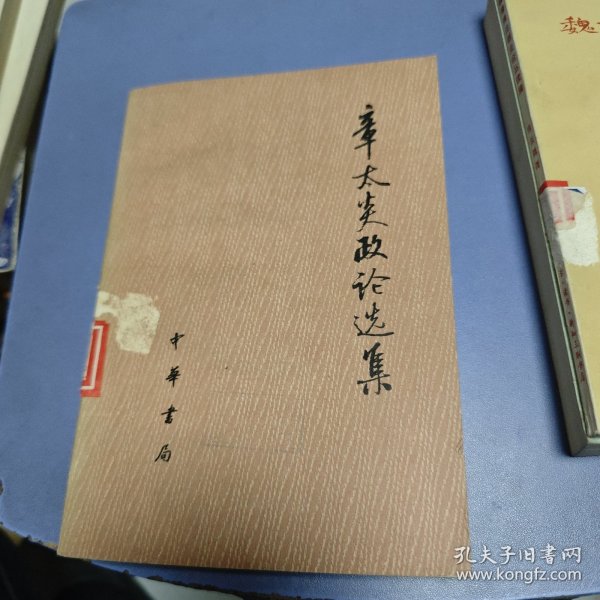 章太炎政论选集
中华书局
魏
孔夫子旧书网
www.kongfz.com